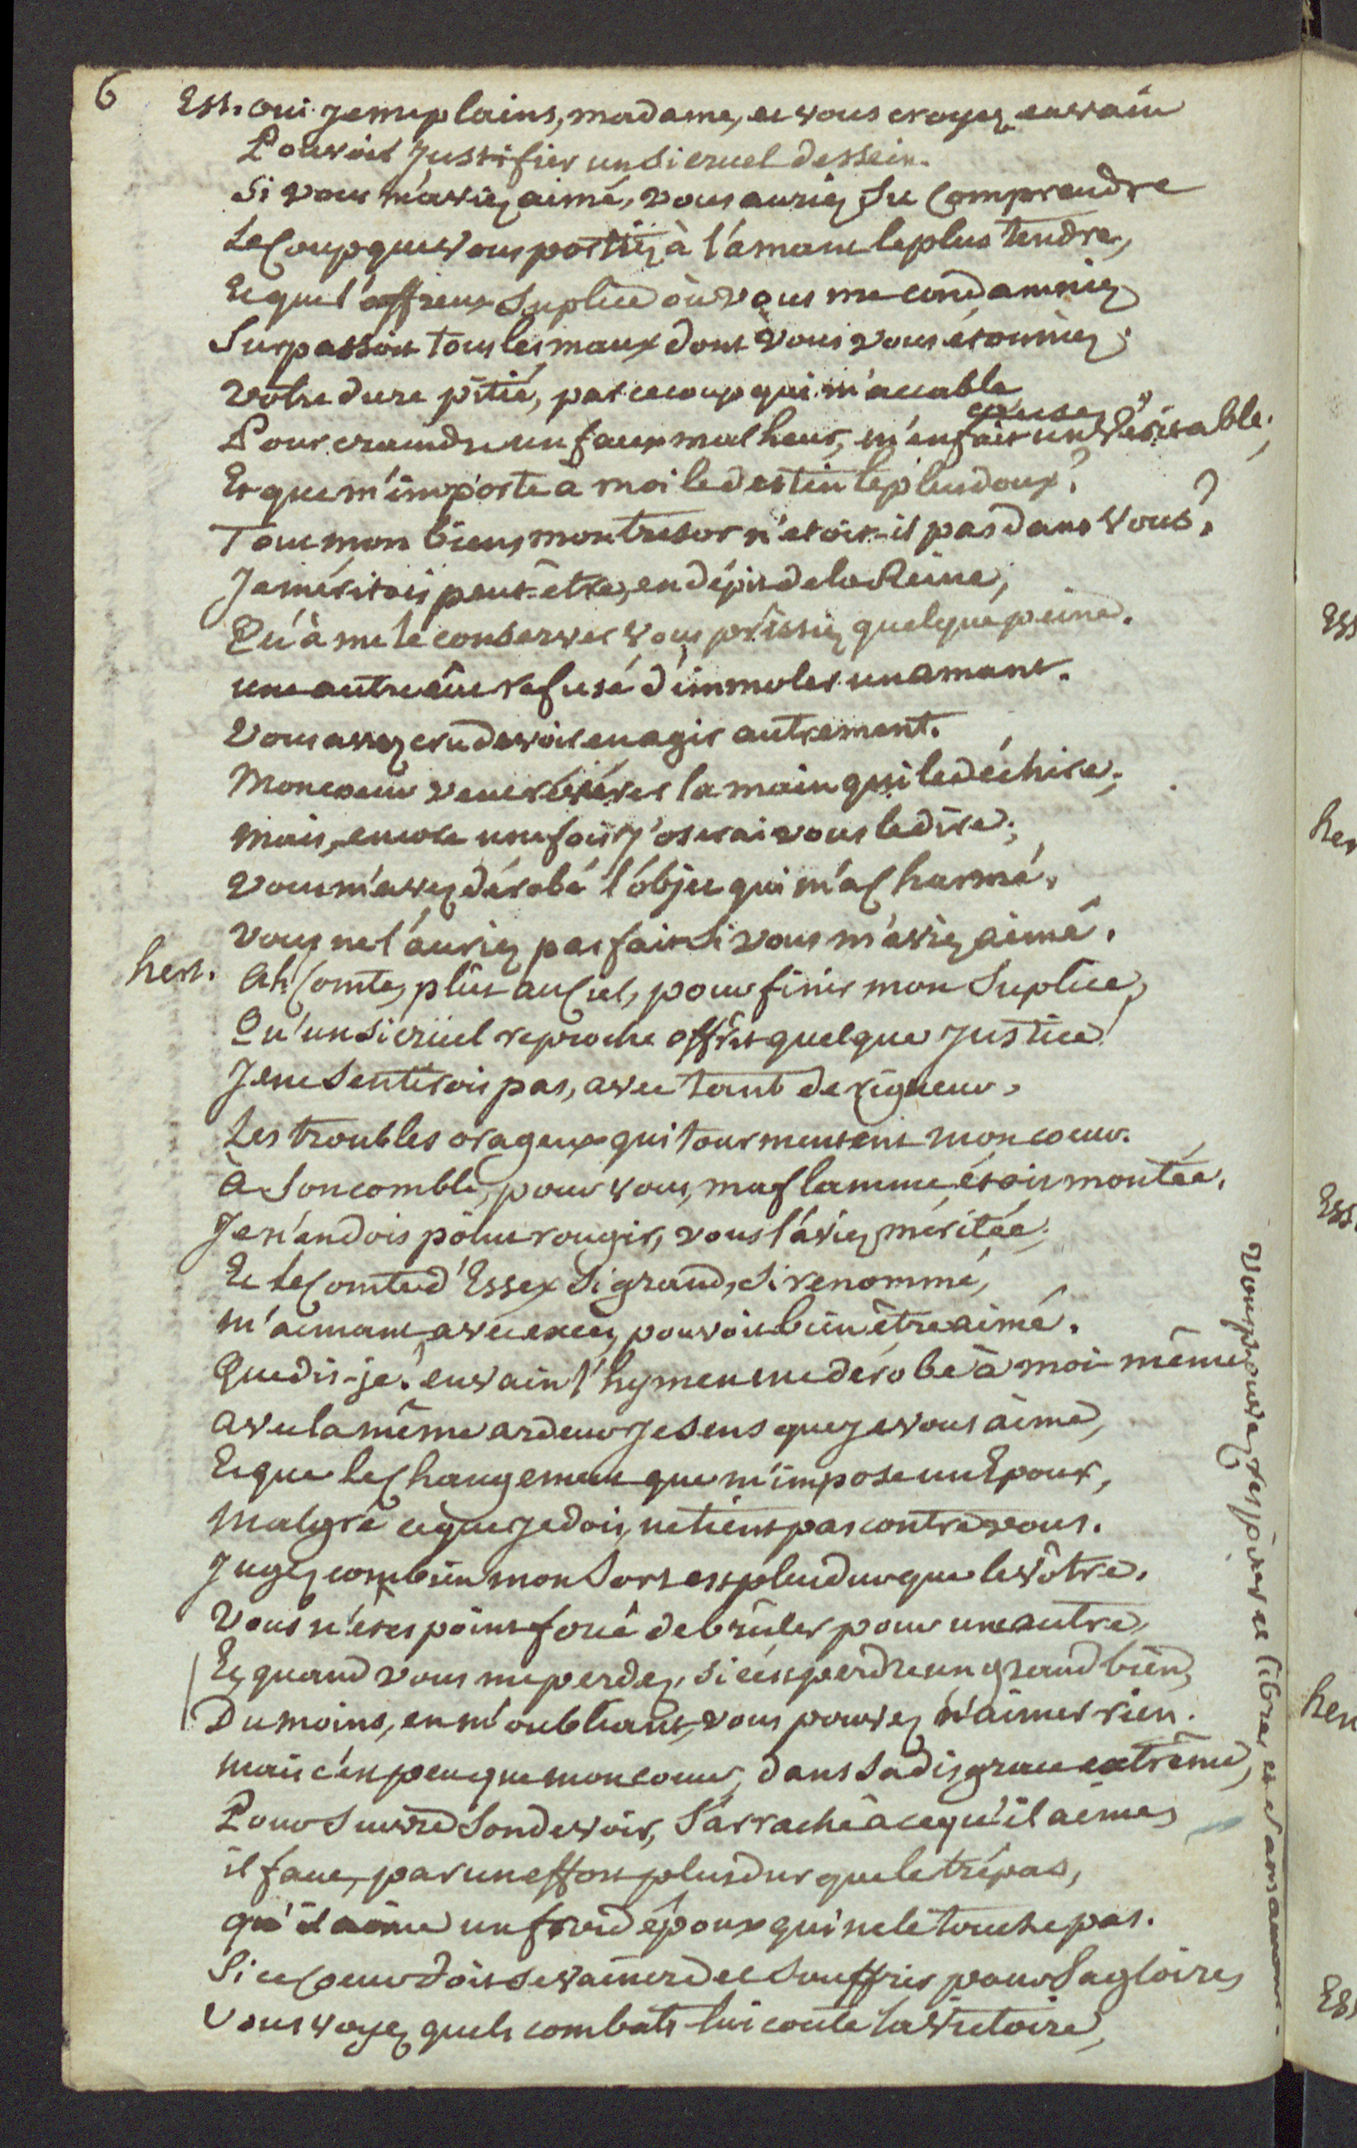 6
Ess. oui je me plains, madame, et vous croyez envain
Pouvoir justifier un si cruel dessein.
Si vous m'aviez aimé, vous auriez su comprendre
Le coup que vous portiez à l'amant le plus tendre,
Et que l'affreux suplice où vous me condamniez
Surpassoit tous les maux dont vous vous étonniez.
Votre dure pitié, par ce coup qui m'accable
Pour craindre un faux malheur, m'en fait un véritable.
Et que m'importe à moi le destin le plus doux?
Tout mon bien, mon tresor n'etoit-il pas dans vous?
Je méritois peut-être, en dépit de la Reine,
Qu'à me le conserver vous prissiez quelque peine.
une autre eût refusé d'immoler un amant.
Vous avez cru devoir en agir autrement.
Mon coeur veut révérer la main qui le déchire;
mais, encore une fois, j'oserai vous le dire;
vous m'avez dérobé l'objet qui m'a charmé,
vous ne l'auriez pas fait si vous m'aviez aimé.
hen. Ah Comte, plût au Ciel, pour finir mon suplice,
Qu'un si cruel reproche offrît quelque justice!
Je ne sentirois pas, avec tant de rigueur,
Les troubles orageux qui tourmentent mon coeur.
à son comble, pour vous, ma flamme étoit montée,
Je n'en dois point rougir, vous l'aviez méritée;
Et le Comte d'Essex si grand, si renommé,
m'aimant avec excès, pouvoit bien être aimé.
Que dis-je? envain l'hymen me dérobe à moi-même
avec la même ardeur je sens que je vous aime,
Et que le changement que m'impose un Epoux,
Malgré ce que je dois, ne tient pas contre vous.
Jugez combien mon sort est plus dur que le vôtre.
Vous n'êtes point forcé de brûler pour une autre,
Et quand vous me perdez, si c'est perdre un grand bien,
Du moins, en m'oubliant, vous pouvez n'aimer rien.
mais c'est peu que mon coeur, dans sa disgrace extrême,
Pour suivre son devoir, s'arrache à ce qu'il aime,
il faut, par un effort plus dur que le trépas,
qu'il aime un froid époux qui ne le touche pas.
Si ce coeur doit se vaincre et souffrir pour sa gloire,
Vous voyez quels combats lui coute la victoire,
vous pouvez respirer et libre et sans amour.
Ess
hen
Ess
hen
Ess